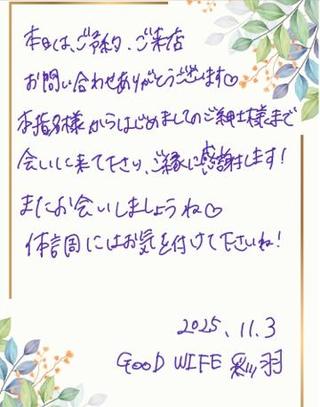 本日は、ご予約、ご来店
お問い合わせありがとうございます♡
本指名様からはじめましてのご紳士様まで
会いに来て下さり、ご縁に感謝します！
またお会いしましょうね♡
体調にはお気を付けて下さいね！
2025.11.3
GOOD WIFE 彩羽